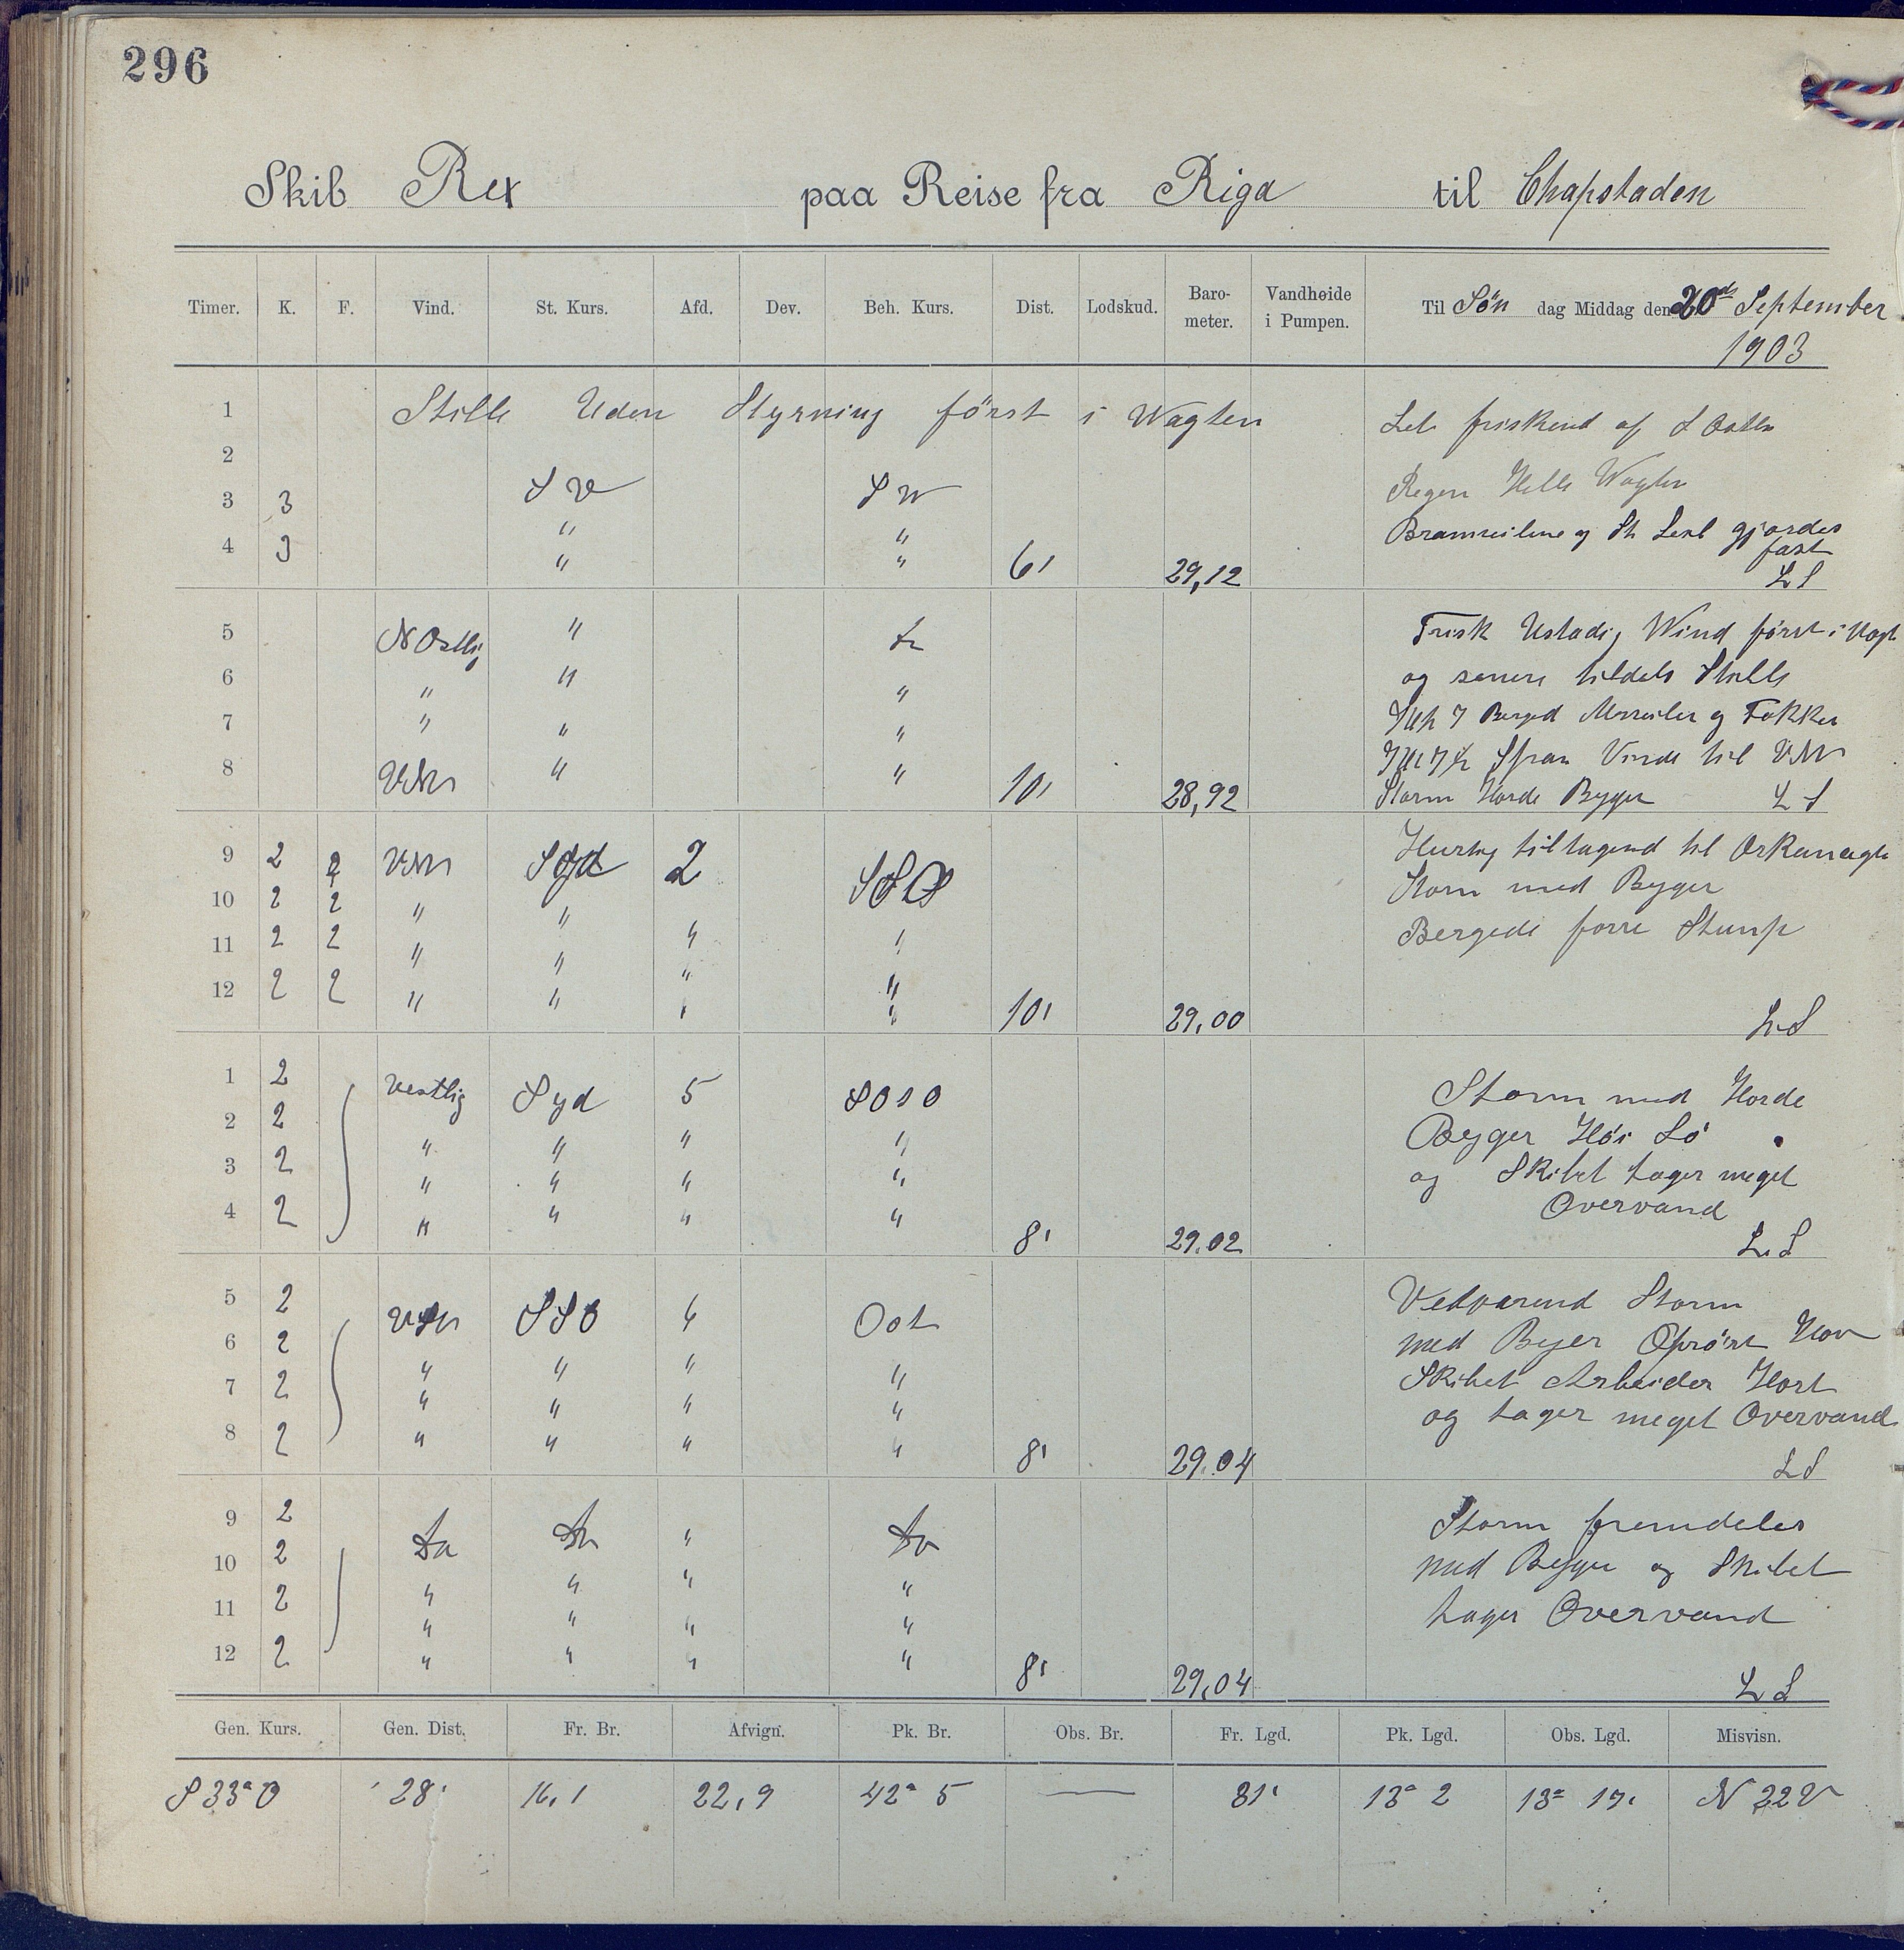 296
Skib Rex paa Reise fra Riga til Chapstaden
Timer. K. F. Vind. St. Kurs. Afd. Dev. Beh. Kurs. Dist. Lodskud. Barometer. Vandheide i Pumpen. Til Sön dag Middag den 20de September
1903
1 Stille Uden Styrning först i Wagten
2
3 3 S V S W
4 3 " " 6' 29,12
Regen Hele Wagten
Bramseilene og St Seil gjordes
fast
L S
5 N Ostlig "
6 " " "
7 " " "
8 " " 10' 28,92
Frisk Ustadig Wind först i Vagt
og senere tildels Stille
Storm Horde Byger L S
9 2 2 VNV Syd 2 SSO
10 2 2 " "
11 2 2 " " " "
12 2 2 " " " " 10' 29,00
Hurtig tiltagend til
Storm med Byger
Bergede forre Stump
L S
1 2 Vestlig Syd 5 SOSO
2 2 " " " "
3 2 " " " "
4 2 " " " " 8' 29.02
Storm med Horde
Bygger Höi Sö
og Skibet tager meget
Overvand
L. S
5 2 SSO 4 Ost
6 2 " " " "
7 2 " " " "
8 2 " " " " 8' 29.04
Vedvarend Storm
med Byer Oprört Hav
Skibet Arbeider Hort
og tager meget Overvand
L S
9 2 Do Do " Do
10 2 " " " "
11 2 " " " "
12 2 " " " " 8' 29,04
Storm fremdeles
med Bygger og Skibet
tager Overvand
L S
Gen. Kurs. Gen. Dist. Fr. Br. Afvign. Pk. Br. Obs. Br. Fr. Lgd. Pk. Lgd. Obs. Lgd. Misvisn.
S 33° O 28' 16,1 22,9 42° 5 — 31' 13° 2 13° 17' N 22 V